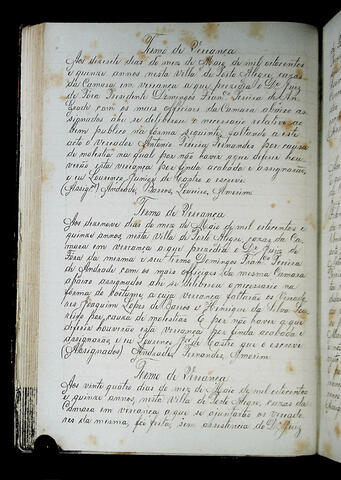 Termo de Veriança
Aos dezesete dias do mez de Maio de mil oitocentos
e quinze annos nesta Villa de Porto Alegre, cazas
da Camara em veriança a que prezidio o Dr Juiz
de Fora Prezidente Domingos Franco Pereira de An
drade com os mais officiaes da Camara abaixo as
signados ahi se deliberou o necessario relativo ao
bem publico na forma seguinte faltando a este
acto o vereador Antonio Pereira Fernandes por cauza
de molestia na qual por não haver a que deferir hou
verão esta veriança por finda acabada e assignarão,
e eu Lourenço Junior de Castro o escrevi
(Assigos) Andrade, Barros, Loureiro, Amorim
Termo de Veriança
Aos dezenove dias do mez de Maio de mil oitocentos e
quinze annos, nesta Villa de Porto Alegre, cazas da Ca
mara em veriança a que prezidio o Dr Juiz de
Fora da mesma e seu Termo Domingos Franco Pereira
de Andrade com os mais officiaes da mesma Camara
abaixo assignados ahi se deliberou o necessario na
forma do costume, a cuja veriança faltarão os Veread
ores Joaquim Lopes de Barros e Henrique da Silva Lou
reiro por cauza de molestias E por não haver a que
deferir houverão esta veriança por finda acabada e
assignarão, e eu Lourenço Jor de Castro que o escrevi
(Assignados) Andrade, Fernandes, Amorim
Termo de Veriança
Aos vinte quatro dias do mez de Maio de mil oitocentos
e quinze annos, nesta Villa de Porto Alegre, cazas da
Camara em veriança a que se ajuntarão os vereado
res da mesma, foi feita, sem assistencia do Dr Juiz